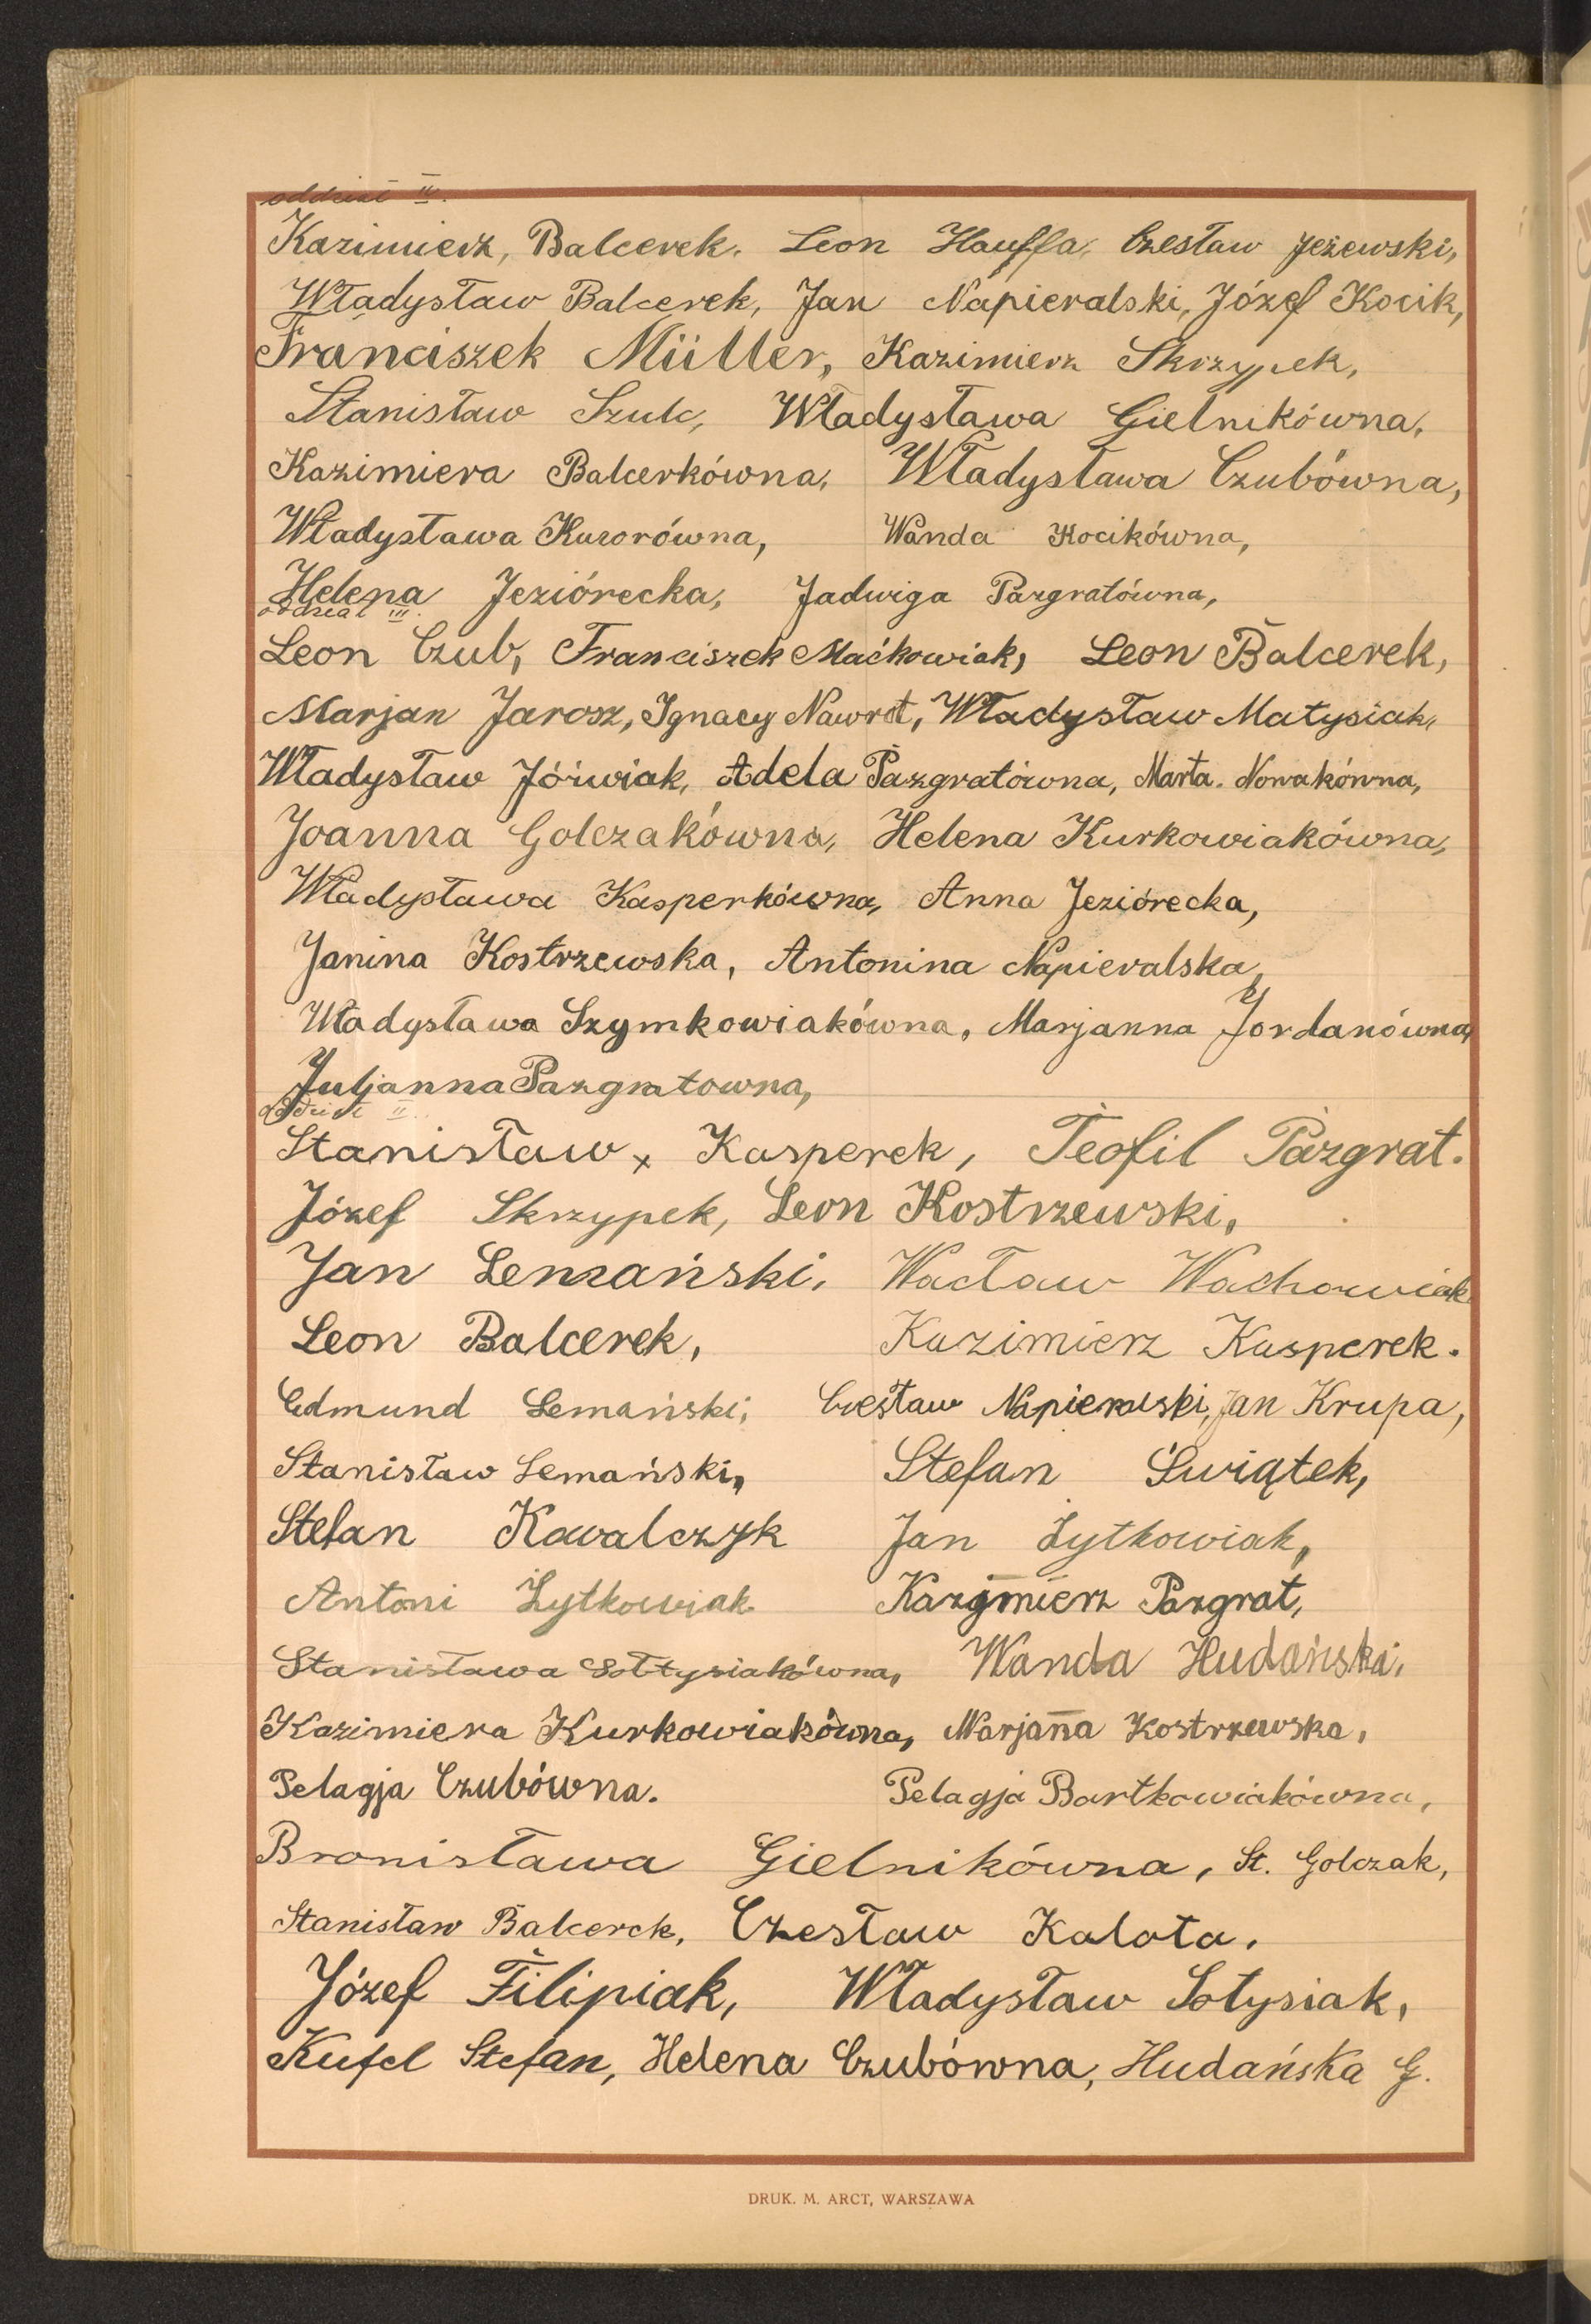 oddział IV.
Kazimierz, Balcerek. Leon Hauffa, Czesław Jeżewski,
Władysław Balcerek, Jan Napieralski, Józef Kocik,
Franciszek Müller, Kazimierz Skrzypek,
Stanisław Szulc, Władysława Gielnikówna,
Kazimiera Balcerkówna, Władysława Czubówna,
Władysława Kuzorówna, Wanda Kocikówna,
Helena Jeziórecka, Jadwiga Pazgratówna,
oddział III.
Leon Czub, Franciszek Maćkowiak, Leon Balcerek,
Marjan Jarosz, Ignacy Nawrot, Władysław Matysiak,
Władysław Jóźwiak, Adela Pazgratówna, Marta. Nowakówna,
Joanna Golczakówna, Helena Kurkowiakówna,
Władysława Kasperkówna, Anna Jeziórecka,
Janina Kostrzewska, Antonina Napieralska,
Władysława Szymkowiakówna, Marjanna Jordanówna,
Juljanna Pazgratowna,
oddział II.
Stanisław x Kasperek, Teofil Pazgrat.
Józef Skrzypek, Leon Kostrzewski,
Jan Lemański, Wacław Wachowiak
Leon Balcerek, Kazimierz Kasperek.
Edmund Lemański, Czesław Napieralski, Jan Krupa,
Stanisław Lemański, Stefan Świątek,
Stefan Kowalczyk Jan Żytkowiak,
Antoni Żytkowiak Kazimierz Pazgrat,
Stanisława Sołtysiakówna, Wanda Hudański,
Kazimiera Kurkowiakówna, Marjan̄a Kostrzewska,
Pelagja Czubówna. Pelagja Bartkowiakówna,
Bronisława Gielnikówna, St. Golczak,
Stanisław Balcerek, Czesław Kalota.
Józef Filipiak, Władysław Sołysiak,
Kufel Stefan, Helena Czubówna, Hudańska G.
DRUK. M. ARCT, WARSZAWA